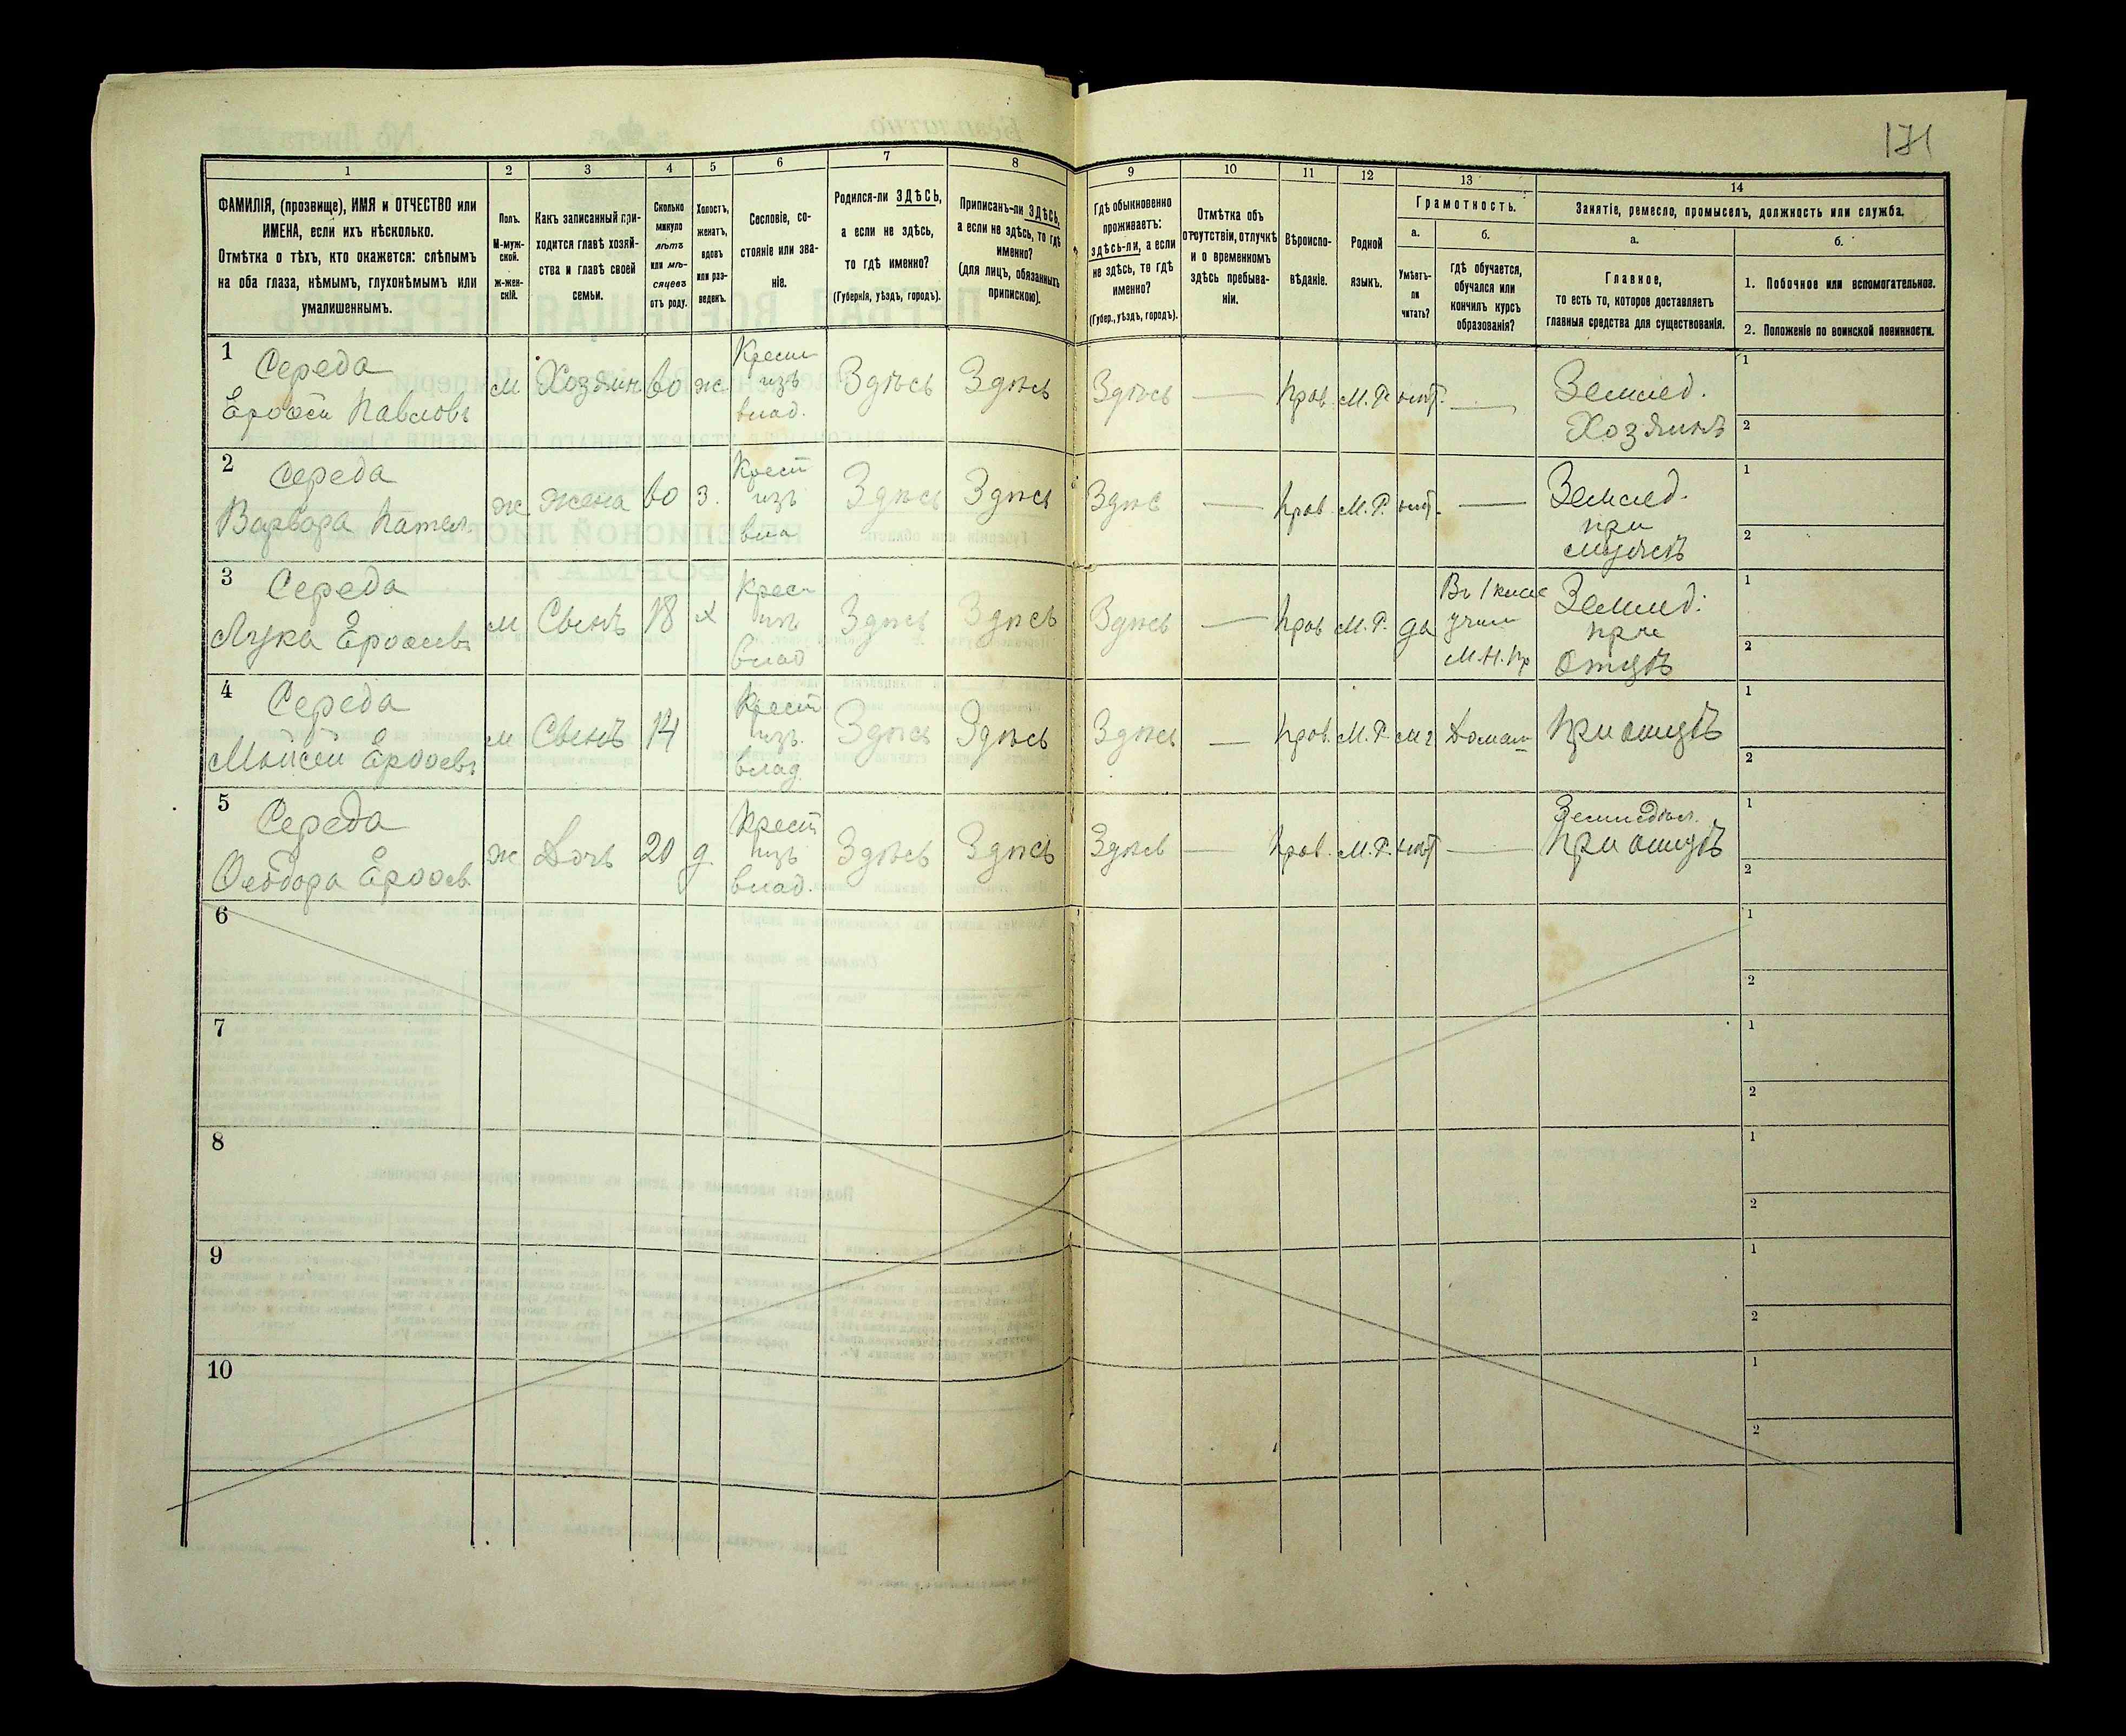 171
1
2
3
4
5
6
7
8
9
10
11
12
13
14
ФАМИЛІЯ, (прозвище), ИМЯ и ОТЧЕСТВО или
ИМЕНА, если ихъ нѣсколько.
Отмѣтка о тѣхъ, кто окажется: слѣпымъ
на оба глаза, нѣмымъ, глухонѣмымъ или
умалишеннымъ.
Полъ.
М-муж-
ской.
ж-жен-
скій.
Какъ записанный при-
ходится главѣ хозяй-
ства и главѣ своей
семьи.
Сколько
минуло
лѣтъ
или мѣ-
сяцевъ
отъ роду.
Холостъ,
женатъ,
вдовъ
или раз-
веденъ.
Сословіе, со-
стояніе или зва-
ніе.
Родился-ли ЗДѢСЬ,
а если не здѣсь,
то гдѣ именно?
(Губернія, уѣздъ, городъ).
Приписанъ-ли ЗДѢСЬ,
а если не здѣсь, то гдѣ
именно?
(для лицъ, обязанныхъ
припискою).
Гдѣ обыкновенно
проживаетъ:
здѣсь-ли, а если
не здѣсь, то гдѣ
именно?
(Губер., уѣздъ, городъ).
Отмѣтка объ
отсутствіи, отлучкѣ
и о временномъ
здѣсь пребыва-
ніи.
Вѣроиспо-
вѣданіе.
Родной
языкъ.
Грамотность.
а.
Умѣетъ-
ли
читать?
б.
гдѣ обучается,
обучался или
кончилъ курсъ
образованія?
Занятіе, ремесло, промыселъ, должность или служба.
а.
Главное,
то есть то, которое доставляетъ
главныя средства для существованія.
б.
1. Побочное или вспомогательное.
2. Положеніе по воинской повинности.
1
Середа
Ероѳей Павловъ
м
Хозяинъ
60
ж
Крест
изъ
влад.
Здѣсь
Здѣсь
Здѣсь
—
Прав.
М.Р.
нѣт.
—
Землед.
Хозяинъ
1
2
2
Середа
Варвара
ж
Жена
60
з.
Крест
изъ
вла
Здѣсь
Здѣсь
Здѣс
—
Прав.
М.Р.
нѣт.
—
Землед.
при
мужѣ
1
2
3
Середа
Лука Ероѳеевъ
м
Сынъ
18
х
Крес
изъ
влад
Здѣсь
Здѣсь
Здѣсь
—
Прав
М.Р.
да
Въ 1 клас
учил
М.Н.Пр
Землед.
при
Отцѣ
1
2
4
Середа
Мойсей Ероѳевъ
м
Сынъ
14
Крест
изъ.
влад.
Здѣсь
Здѣсь
Здѣсь
—
Прав.
М.Р.
Домаш
При отцѣ
1
2
5
Середа
Ѳеодора Ероѳев.
ж
Дочь
20
д.
Крест
изъ
влад.
Здѣсь
Здѣсь
Здѣсь
—
Прав.
М.Р.
нѣт
—
Земледѣл.
При отцѣ
1
2
6
1
2
7
1
2
8
1
2
9
1
2
10
1
2